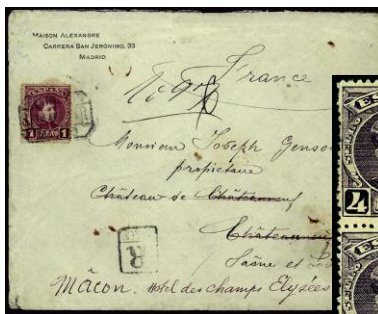 MAISON ALEXANDRE
CARRERA SAN JERÓNIMO, 33
MADRID
France
Monsieur Joseph
propriétaire
Château de Châteauneuf
Châteauneuf
Saône et
R
Mâcon. Hôtel des champs Elysées
1 1
4